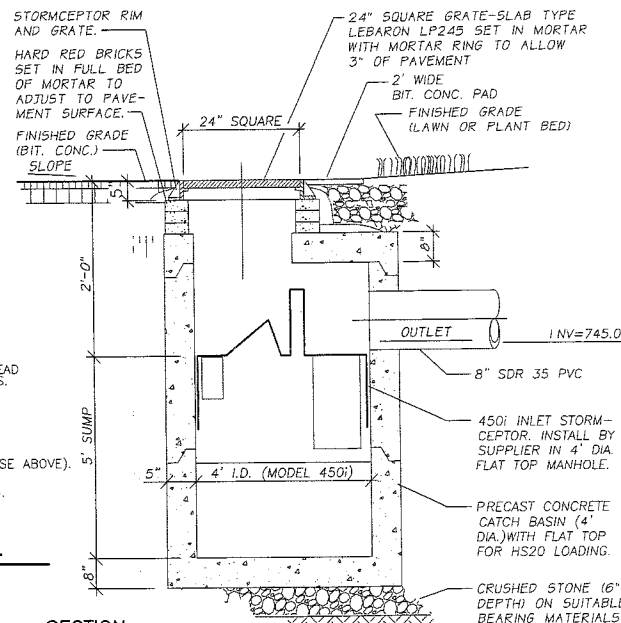 STORMCEPTOR RIM
AND GRATE.
HARD RED BRICKS
SET IN FULL BED
OF MORTAR TO
ADJUST TO PAVE-
MENT SURFACE.
FINISHED GRADE
(BIT. CONC.)
SLOPE
24" SQUARE
24" SQUARE GRATE-SLAB TYPE
LEBARON LP245 SET IN MORTAR
WITH MORTAR RING TO ALLOW
3" OF PAVEMENT
2' WIDE
BIT. CONC. PAD
FINISHED GRADE
(LAWN OR PLANT BED)
5"
8"
2'-0"
OUTLET
INV=745.0
8" SDR 35 PVC
EAD
S.
5' SUMP
450i INLET STORM-
CEPTOR. INSTALL BY
SUPPLIER IN 4' DIA.
FLAT TOP MANHOLE.
SE ABOVE).
5"
4' I.D. (MODEL 450i)
PRECAST CONCRETE
CATCH BASIN (4'
DIA.) WITH FLAT TOP
FOR HS20 LOADING.
8"
CRUSHED STONE (6"
DEPTH) ON SUITABLE
BEARING MATERIALS
SECTION